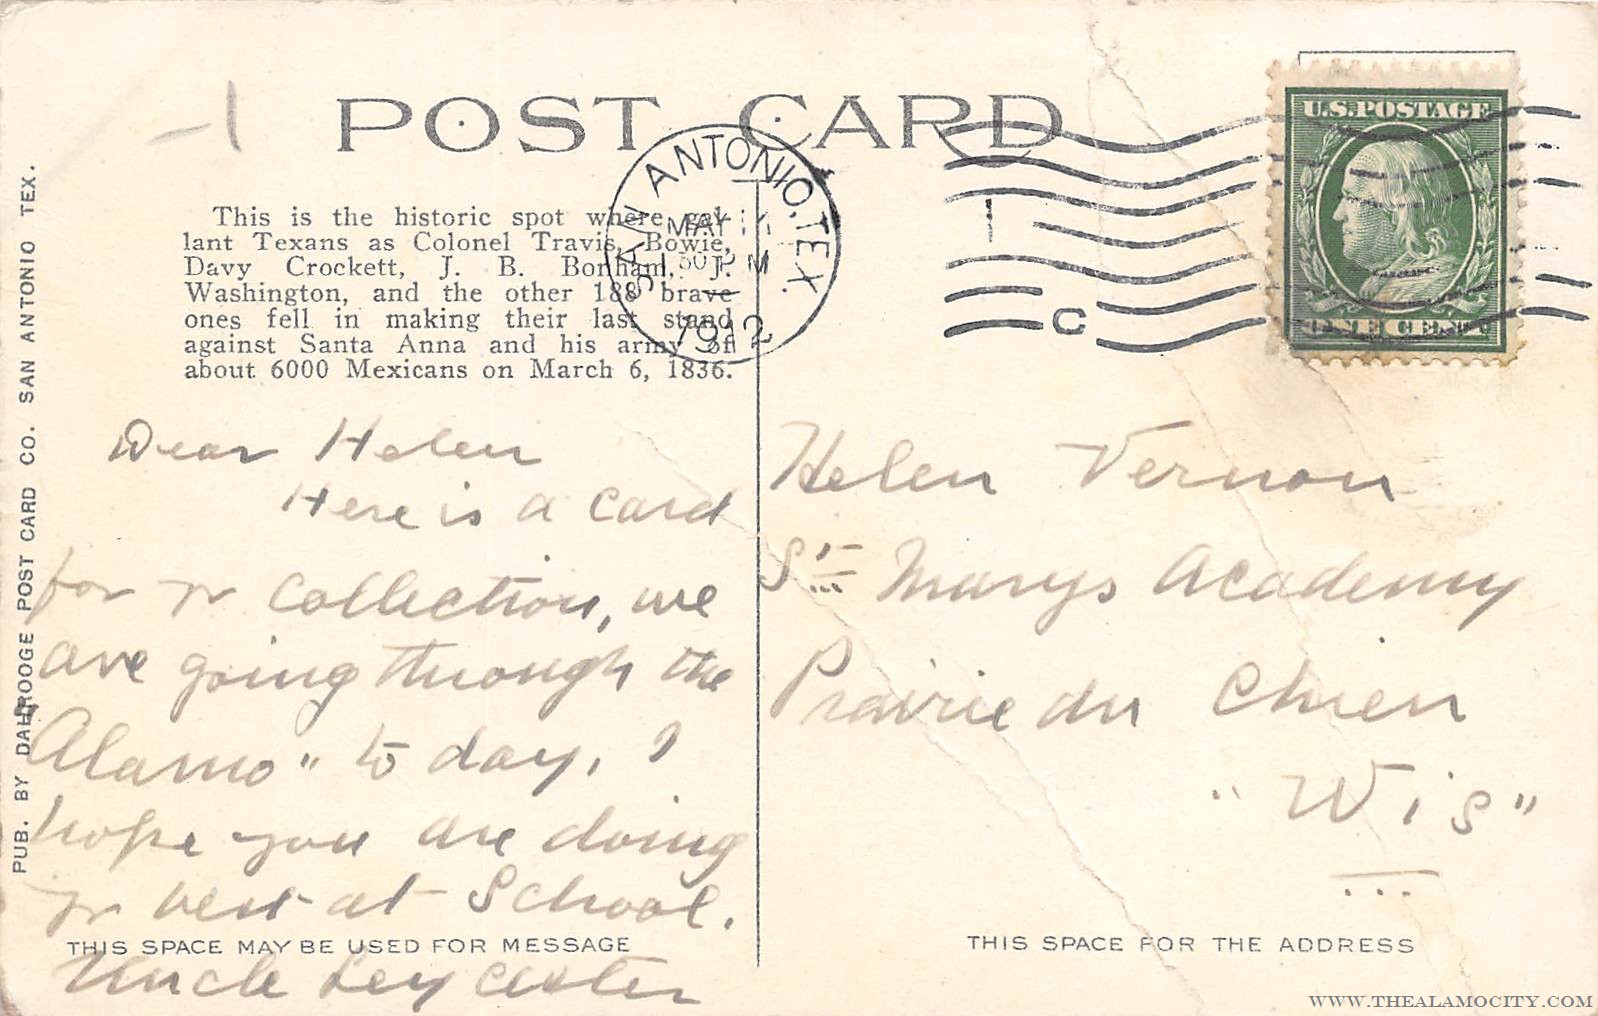 POST CARD
U.S. POSTAGE
ONE CENT
SAN ANTONIO, TEX.
MAY
30 P M
1912
C
This is the historic spot where gal-
lant Texans as Colonel Travis, Bowie,
Davy Crockett, J. B. Bonham, J.
Washington, and the other 188 brave
ones fell in making their last stand
against Santa Anna and his army of
about 6000 Mexicans on March 6, 1836.
Dear Helen
Here is a card
for yr collection, we
are going through the
"Alamo" to day, I
hope you are doing
yr best at School.
THIS SPACE MAY BE USED FOR MESSAGE
Uncle Leycester
Helen Vernon
St Marys Academy
Prairie du Chien
"Wis"
THIS SPACE FOR THE ADDRESS
PUB. BY DAHROOGE POST CARD CO. SAN ANTONIO TEX.
WWW.THEALAMOCITY.COM